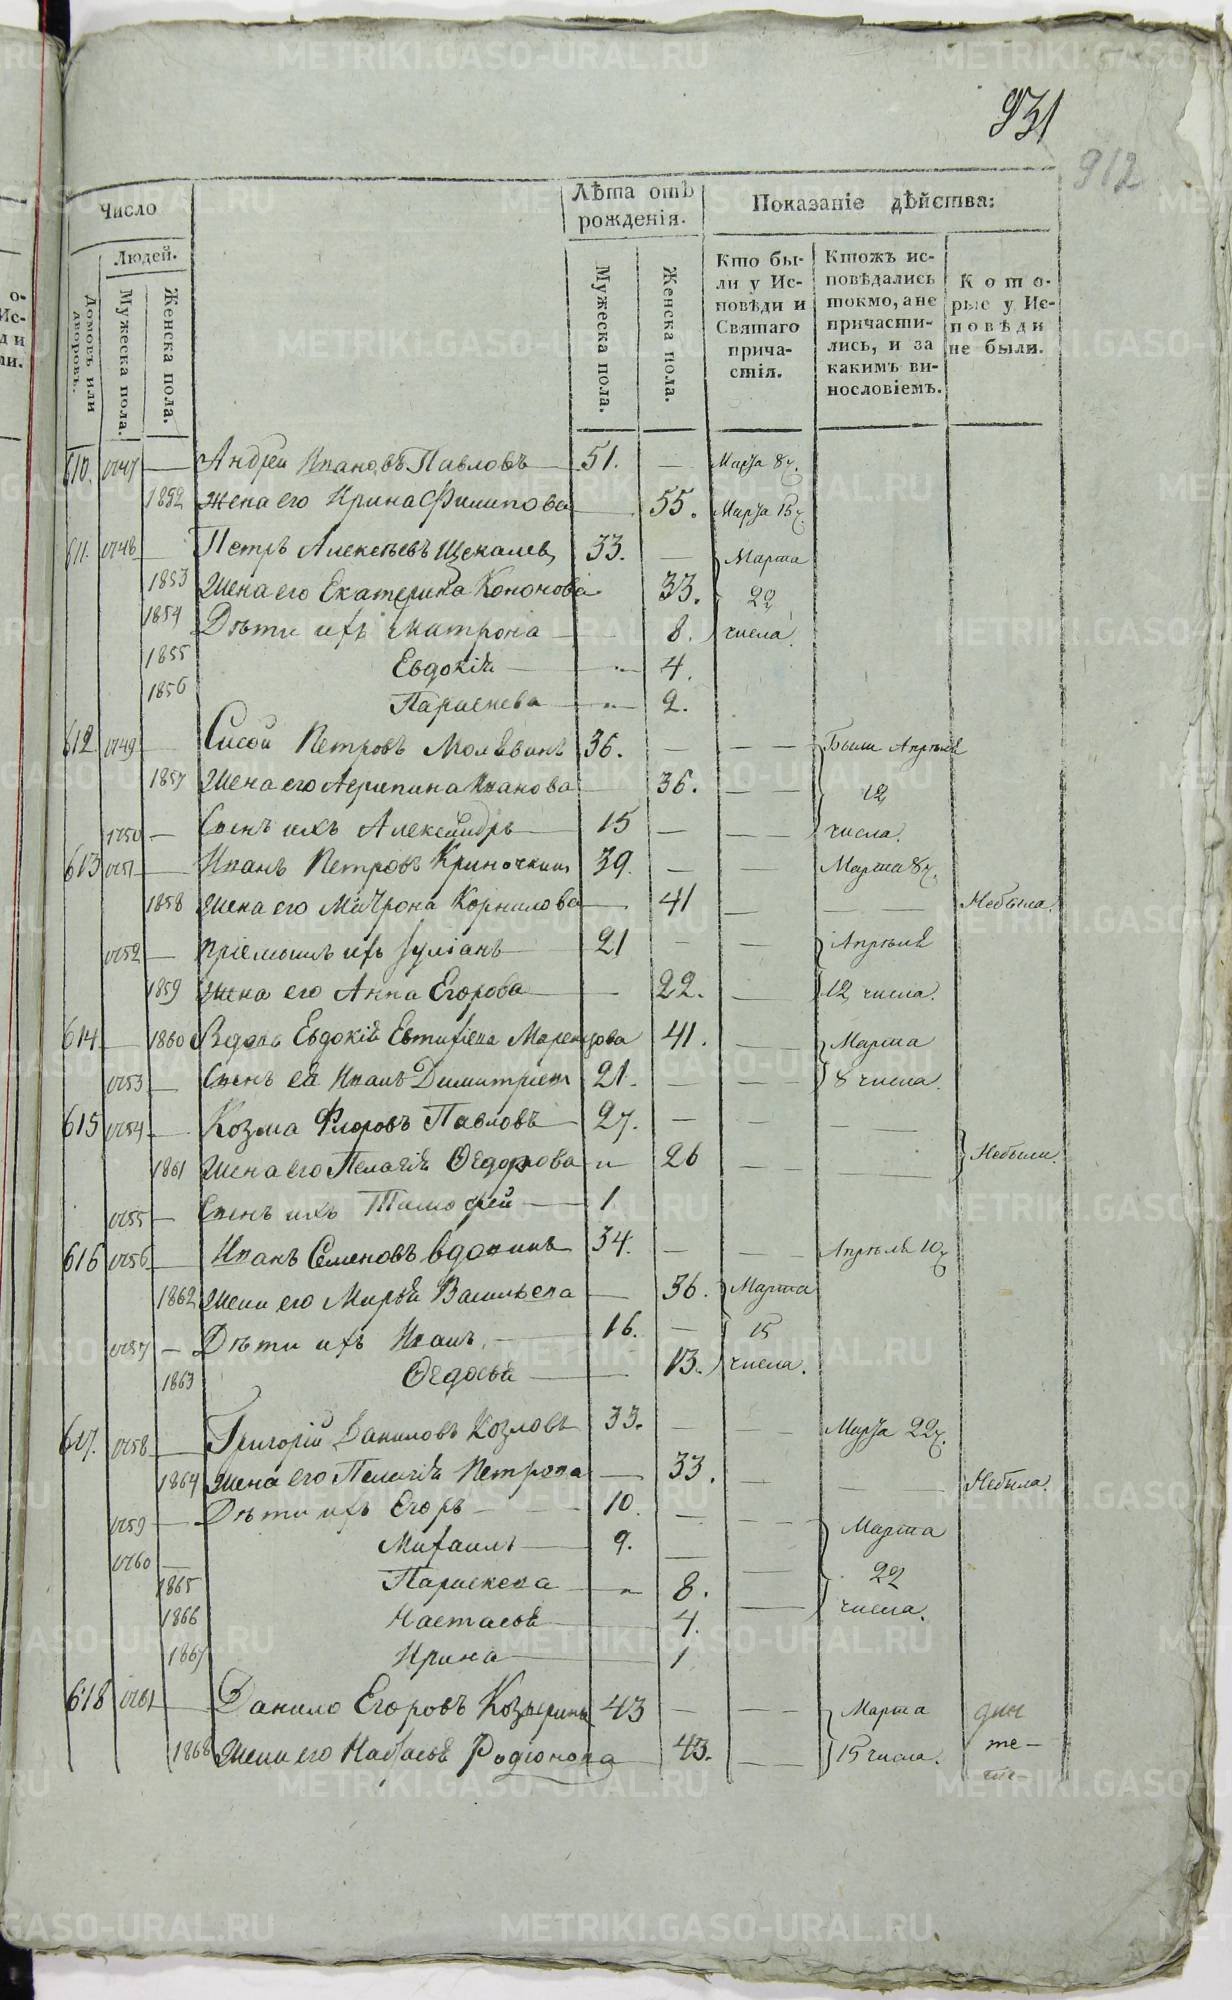 931
912
Число
Лѣта отъ рожденія.
Показаніе дѣйства:
Людей.
Домовъ или дворовъ.
Мужеска пола.
Женска пола.
Мужеска пола.
Женска пола.
Кто бы-
ли у Ис-
повѣди и
Святаго
прича-
стія.
Ктожъ ис-
повѣдались
токмо, а не
причасти-
лись, и за
какимъ ви-
нословіемъ.
Кото-
рые у Ис-
повѣди
не были.
610. Андрей Ивановъ Павловъ 51. Марта 8 ч.
1852 жена его Ирина Филипова 55. Марта 15 ч.
611. Петръ Алексѣевъ 33. Марта
1853 Жена его Екатерина Кононова 33. 22
1854 Дѣти ихъ Матрона 8. числа
1855 Евдокія 4.
1856 Параскева 2.
612 Сисой Петровъ 36. Были Апрѣля
1857 Жена его Агрипина Иванова 36. 12
Сынъ ихъ Александръ 15 числа.
613 Иванъ Петровъ 39. Марта 8 ч.
1858 Жена его Матрона Корнилова 41 Небыла.
пріемышъ ихъ Іуліанъ 21 Апрѣля
1859 Жена его Анна Егорова 22. 12 числа.
614 1860 Вдова Евдокія 41. Марта
Сынъ ея Иванъ Димитріевъ 21. 8 числа.
615 Козма Флоровъ Павловъ 27.
1861 Жена его Пелагія 26 Небыли.
Сынъ ихъ Тимофей 1
616 Иванъ Семеновъ Вдовинъ 34. Апрѣля 10 ч
1862 Жена его Марья Васильева 36. Марта
Дѣти ихъ Иванъ 16. 15
1863 Ѳедосья 13. числа.
617. Григорій Даниловъ Козловъ 33. Марта 22 ч.
1864 Жена его Пелагія Петрова 33. Небыла.
Дѣти ихъ Егоръ 10. Марта
Михаилъ 9. 22
1865 Параскева 8. числа.
1866 Настасья 4.
1867 Ирина 1
618 Данило Егоровъ 43 Марта
1868 Жена его Настасья Родіонова 43. 15 числа.
METRIKI.GASO-URAL.RU